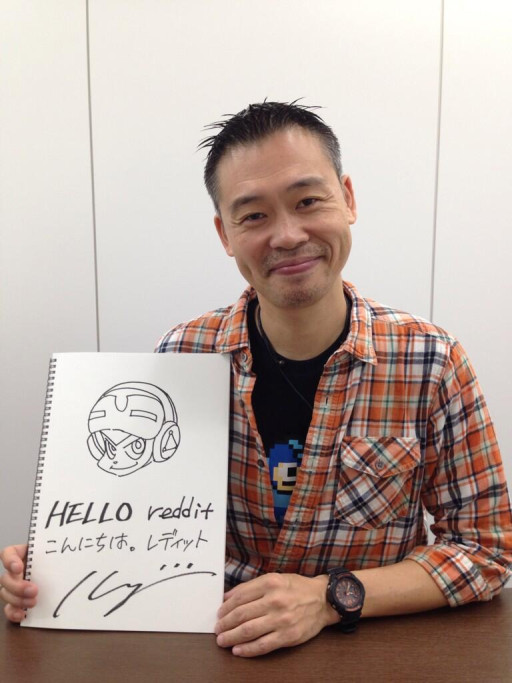 HELLO reddit
こんにちは。レディット